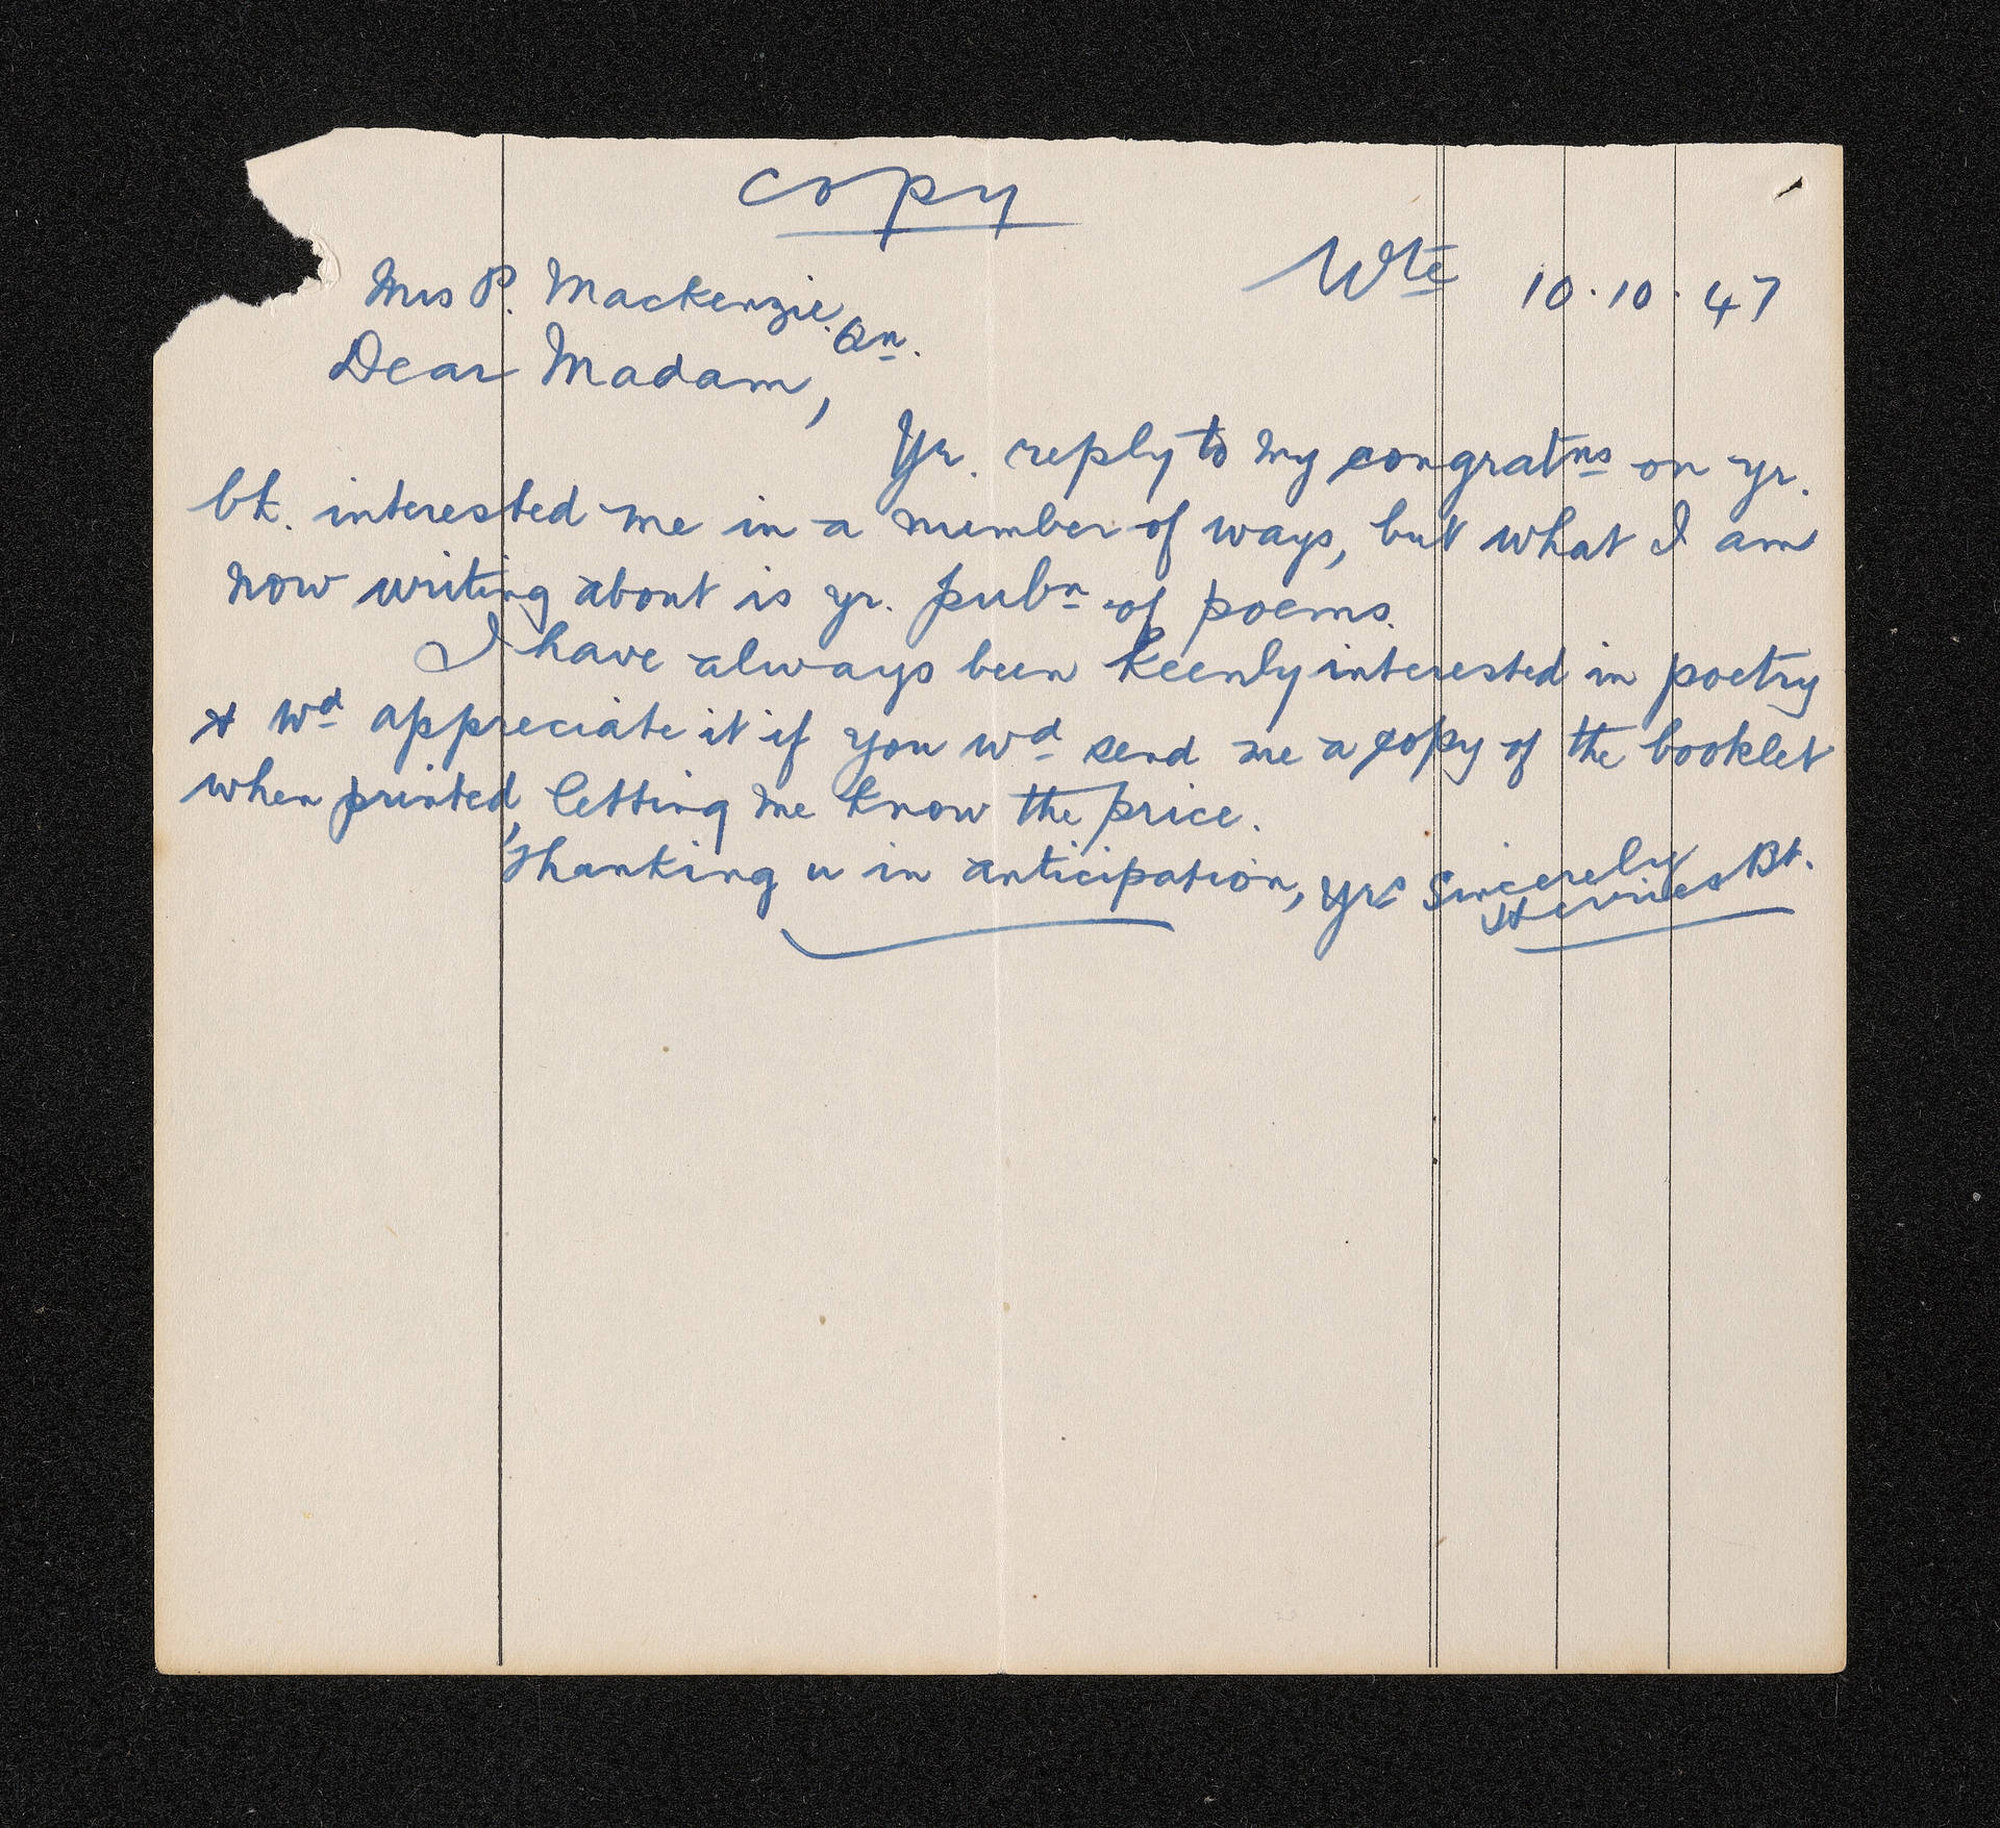 copy
Wte 10.10.47
Mrs P. Mackenzie. Qn.
Dear Madam,
Yr. reply to my congratns on yr.
bk. interested me in a number of ways, but what I am
now writing about is yr. pubn of poems.
I have always been keenly interested in poetry
& wd appreciate it if you wd send me a copy of the booklet
when printed, letting me know the price.
Thanking u in anticipation, yrs sincerely
Herries Bt.